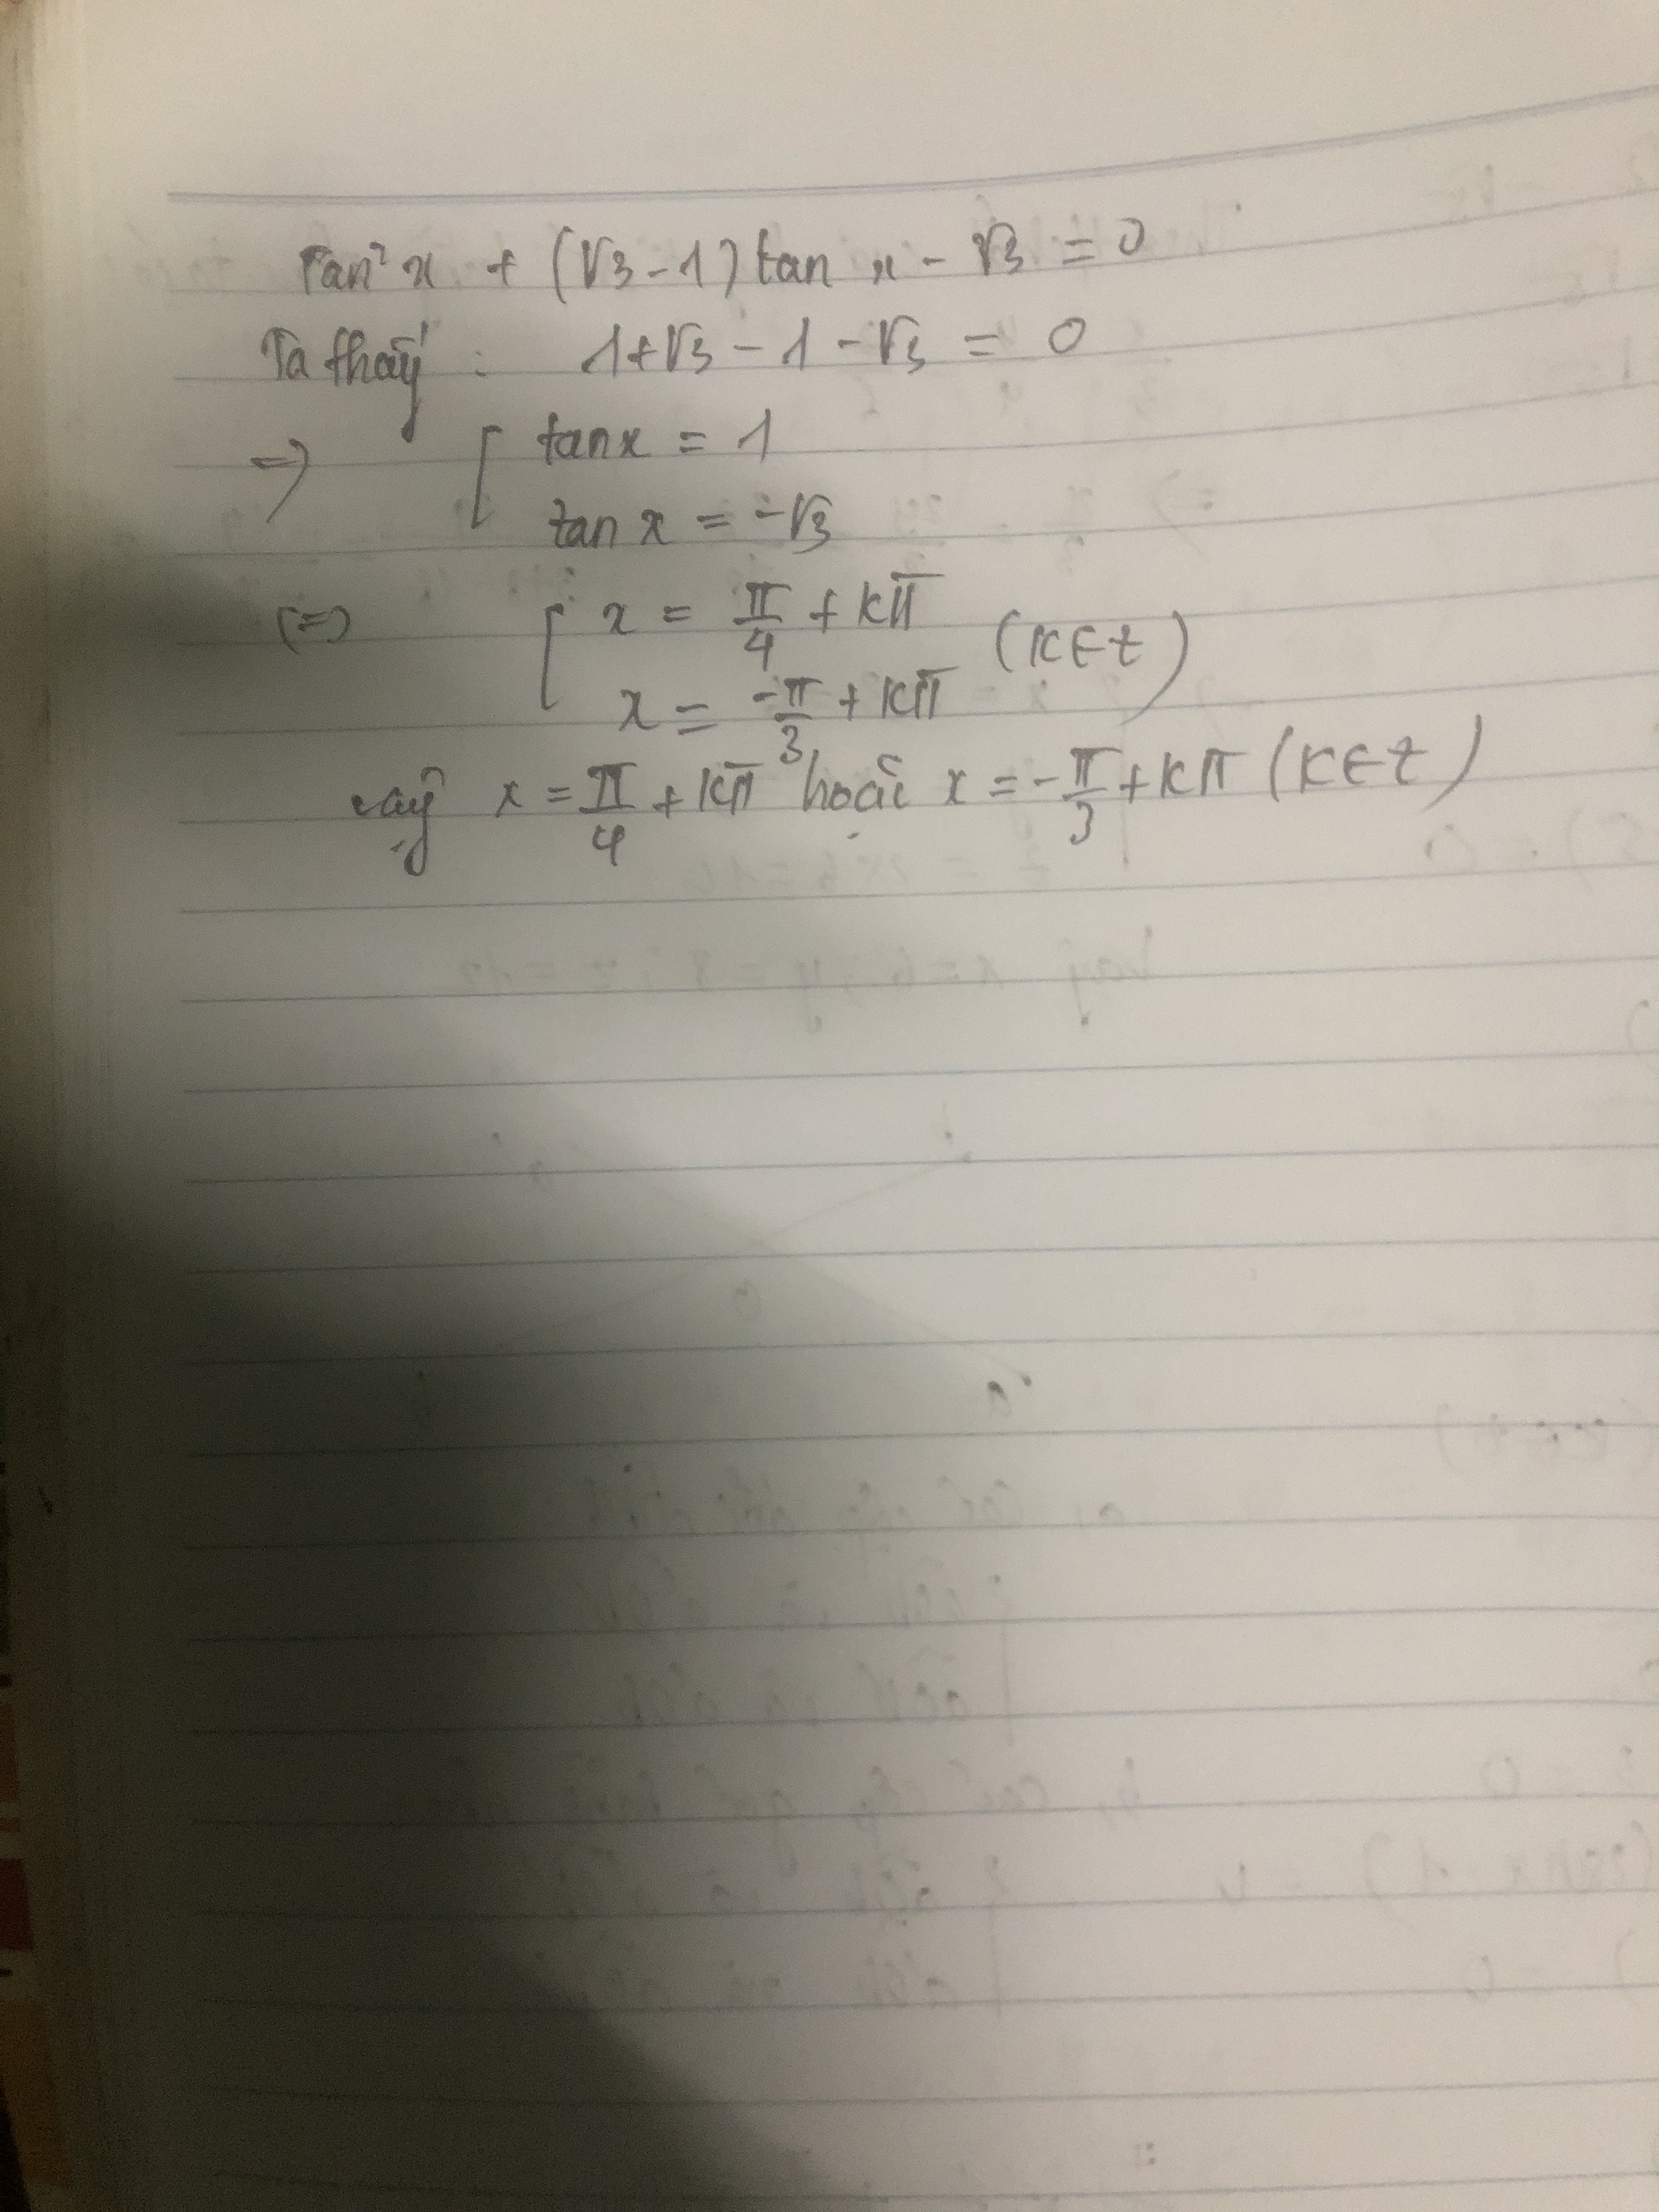 Tan² x + (√3 - 1) tan x - √3 = 0
Ta thấy : 1 + √3 - 1 - √3 = 0
=> [ tan x = 1
tan x = -√3
<=> [ x = π/4 + kπ
x = -π/3 + kπ (k ∈ Z)
vậy x = π/4 + kπ hoặc x = -π/3 + kπ (k ∈ Z)